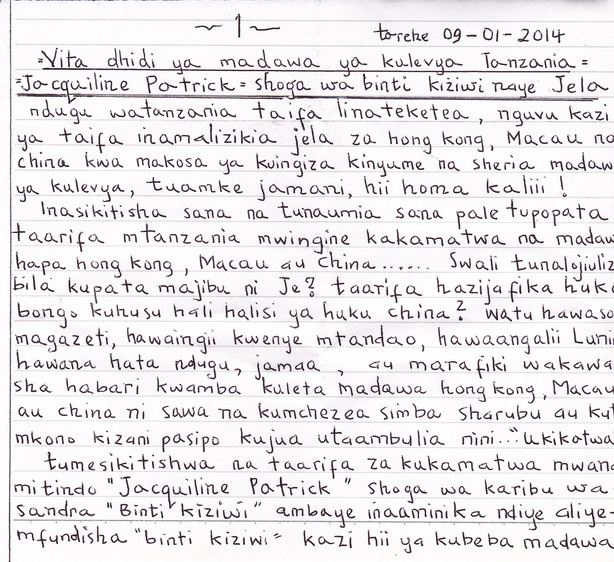 ~ 1 ~
tarehe 09-01-2014
=Vita dhidi ya madawa ya kulevya Tanzania =
=Jacquiline Patrick = shoga wa binti kiziwi naye Jela
ndugu watanzania taifa linateketea, nguvu kazi
ya taifa inamalizikia jela za hong kong, Macau na
china kwa makosa ya kuingiza kinyume na sheria madaw
ya kulevya, tuamke jamani, hii homa kaliii !
Inasikitisha sana na tunaumia sana pale tupopata
taarifa mtanzania mwingine kakamatwa na madaw
hapa hong kong, Macau au China...... Swali tunalojiuliz
bila kupata majibu ni Je? taarifa hazijafika huko
bongo kuhusu hali halisi ya huku china? watu hawaso
magazeti, hawaingii kwenye mtandao, hawaangalii Luni
hawana hata ndugu, jamaa , au marafiki wakawa
sha habari kwamba kuleta madawa hong kong, Macau
au china ni sawa na kumchezea simba sharubu au kut
mkono kizani pasipo kujua utaambulia nini..." ukikotwa
tumesikitishwa na taarifa za kukamatwa mwana
mitindo "Jacquiline Patrick " shoga wa karibu wa
sandra "Binti kiziwi" ambaye inaaminika ndiye aliye-
mfundisha "binti kiziwi" kazi hii ya kubeba madawa